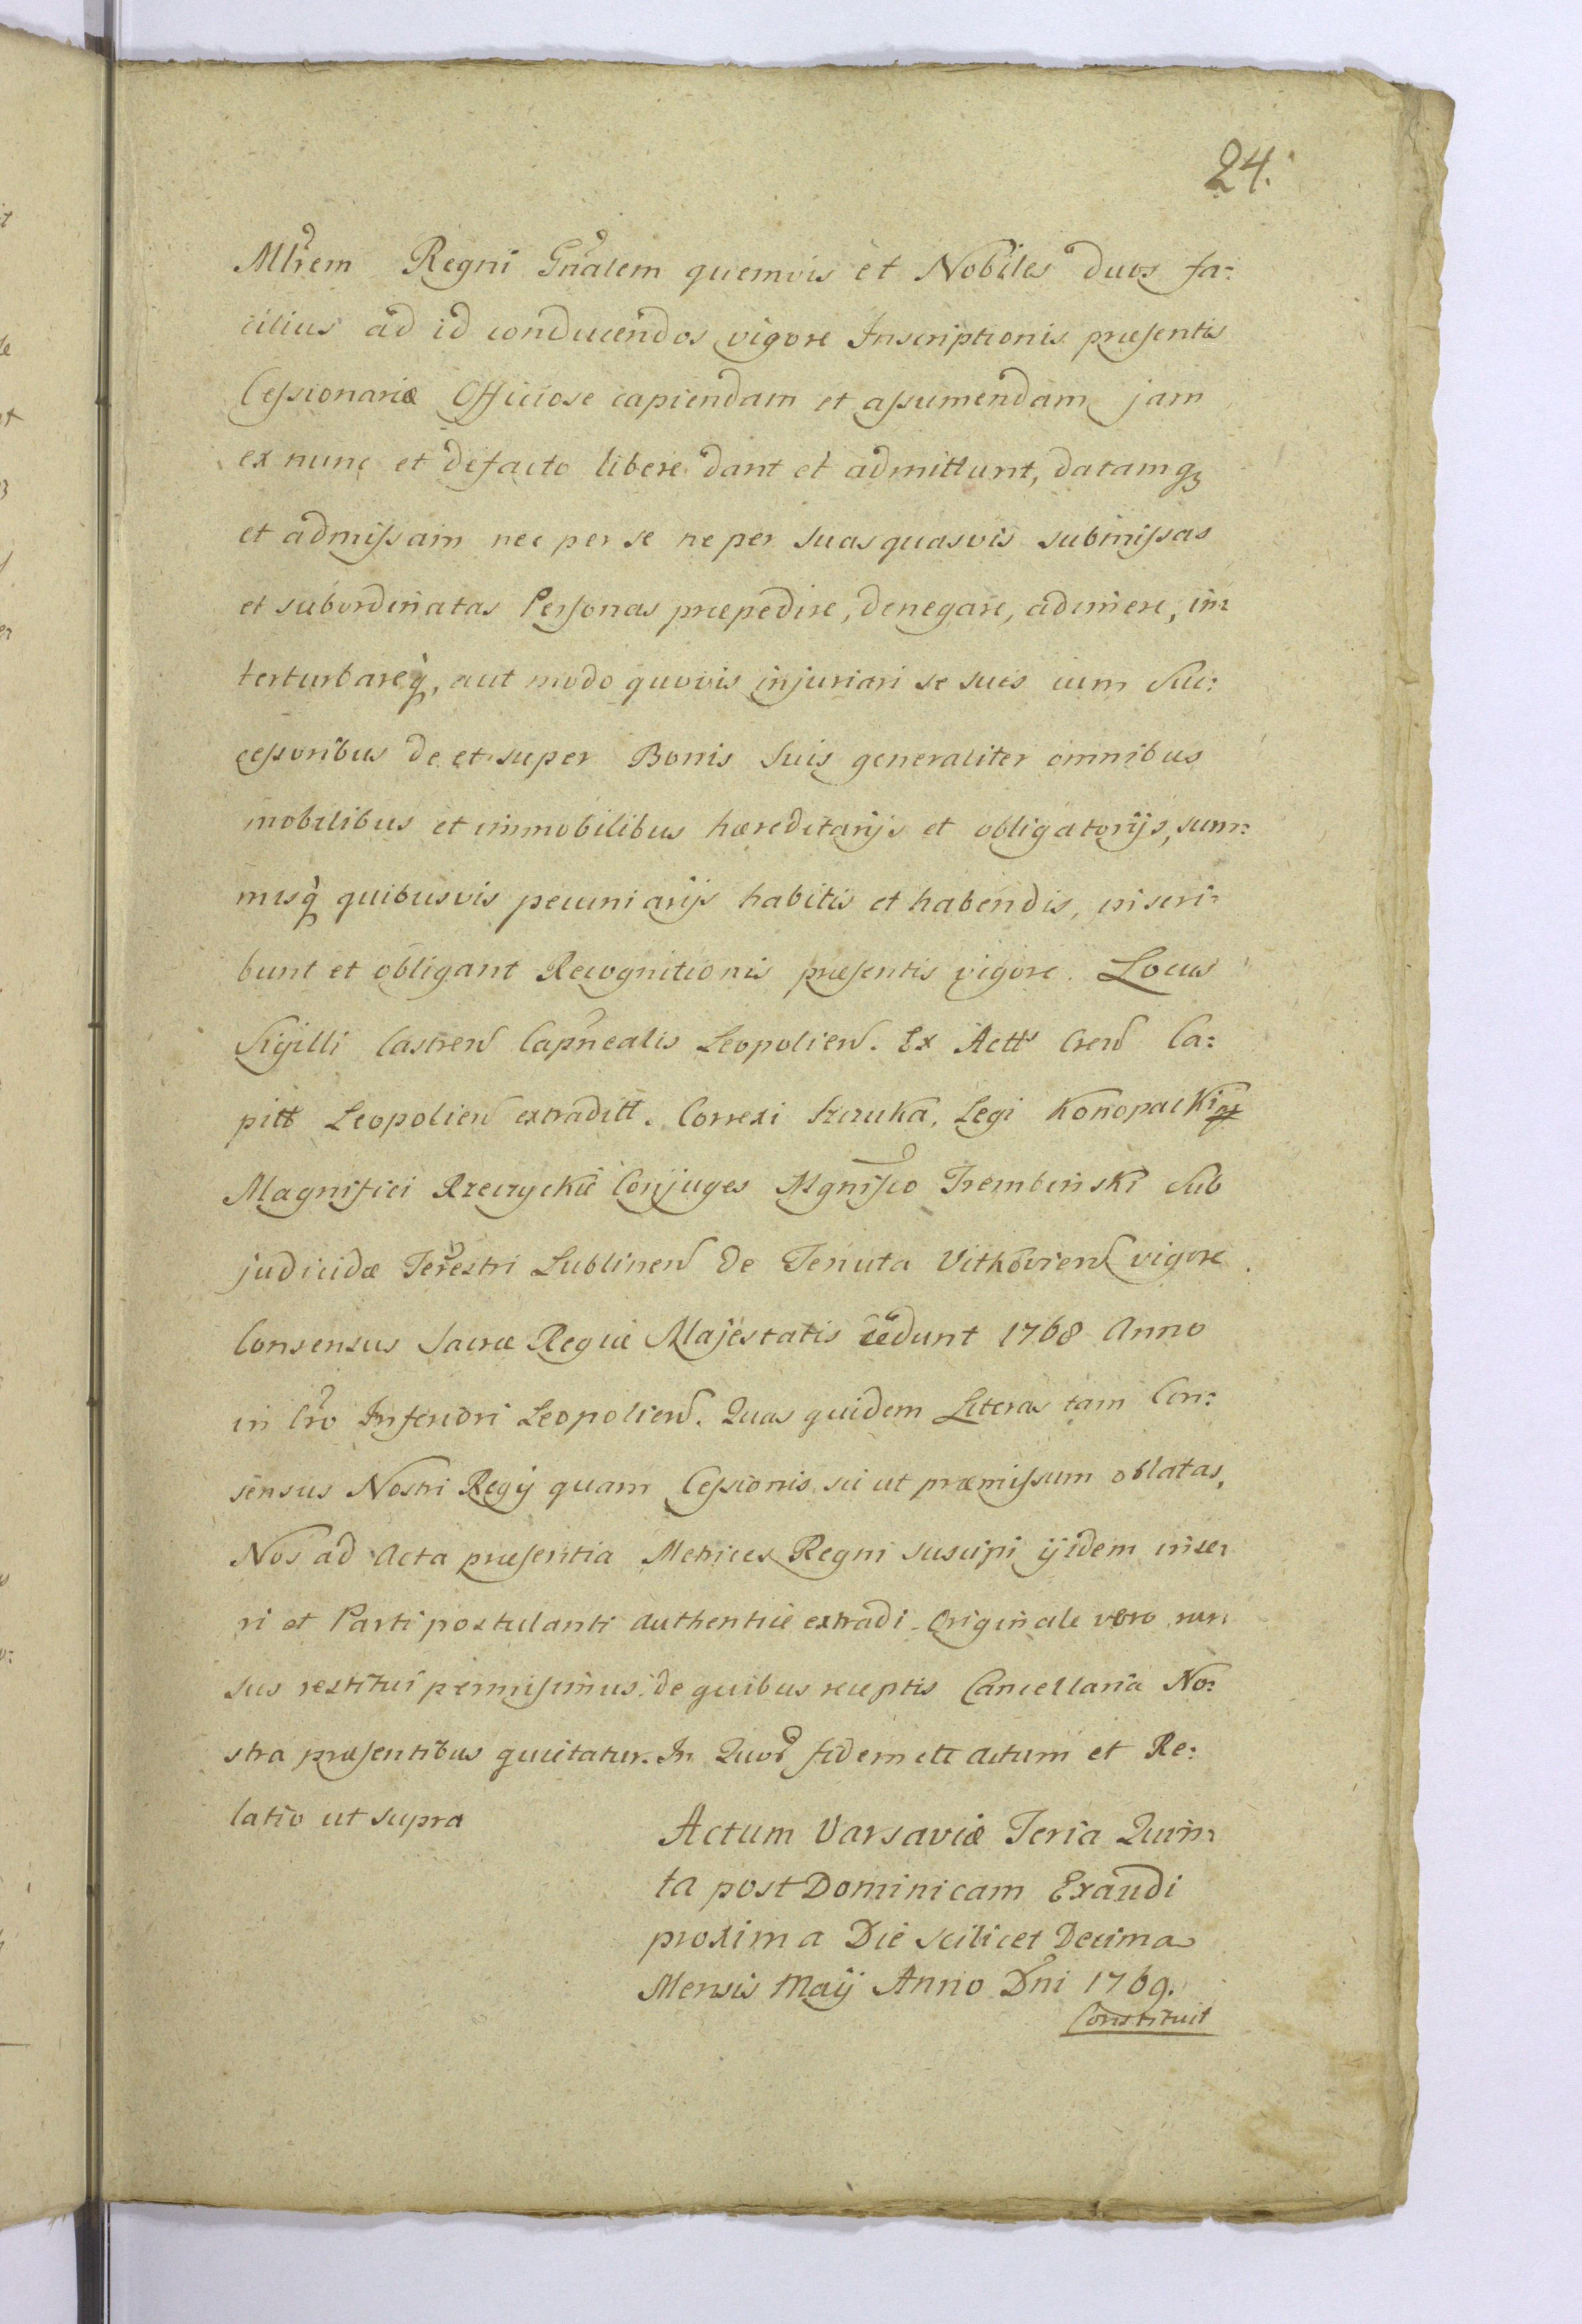 24.
Mlrem Regni Gnalem quemvis et Nobiles duos fa:
cilius ad id conducendos vigore Inscriptionis præsentis
Cessionariæ Officiose capiendam et assumendam jam
ex nunc et defacto libere dant et admittunt, datamq3
et admissam nec per se ne per suas quasvis submissas
et subordinatas Personas præpedire, denegare, adimere, in:
terturbareq, aut modo quovis injuriari se suis cum Suc:
cessoribus de et super Bonis Suis generaliter omnibus
mobilibus et immobilibus hæreditarijs et obligatorijs, sum:
misq quibusvis pecuniarijs habitis et habendis, inscri:
bunt et obligant Recognitionis præsentis vigore. Locus
Sigilli Castren Capnealis Leopolien. Ex Actts Cren Ca:
pitt Leopolien extraditt. Correxi Szczuka, Legi Konopacki
Magnifici Rzeczyckie Conjuges Mgnifico Trembinski Sub
judicidæ Terestri Lublinen de Tenuta Vitkovien vigore
Consensus Sacræ Regiæ Majestatis cedunt 1768 Anno
in Cro Inferiori Leopolien. Quas quidem Literas tam Con:
sensus Nostri Regij quam Cessionis sic ut præmissum oblatas,
Nos ad Acta præsentia Metrices Regni suscipi ijsdem inse:
ri et Parti postulanti authentice extradi. Originale vero rur:
sus restitui permisimus. de quibus receptis Cancellaria No:
stra præsentibus quietatur. In Quod fidem ett actum et Re:
latio ut supra
Actum Varsaviæ Feria Quin:
ta post Dominicam Exaudi
proxima Die scilicet Decima
Mensis Maij Anno Dni 1769.
Constituit